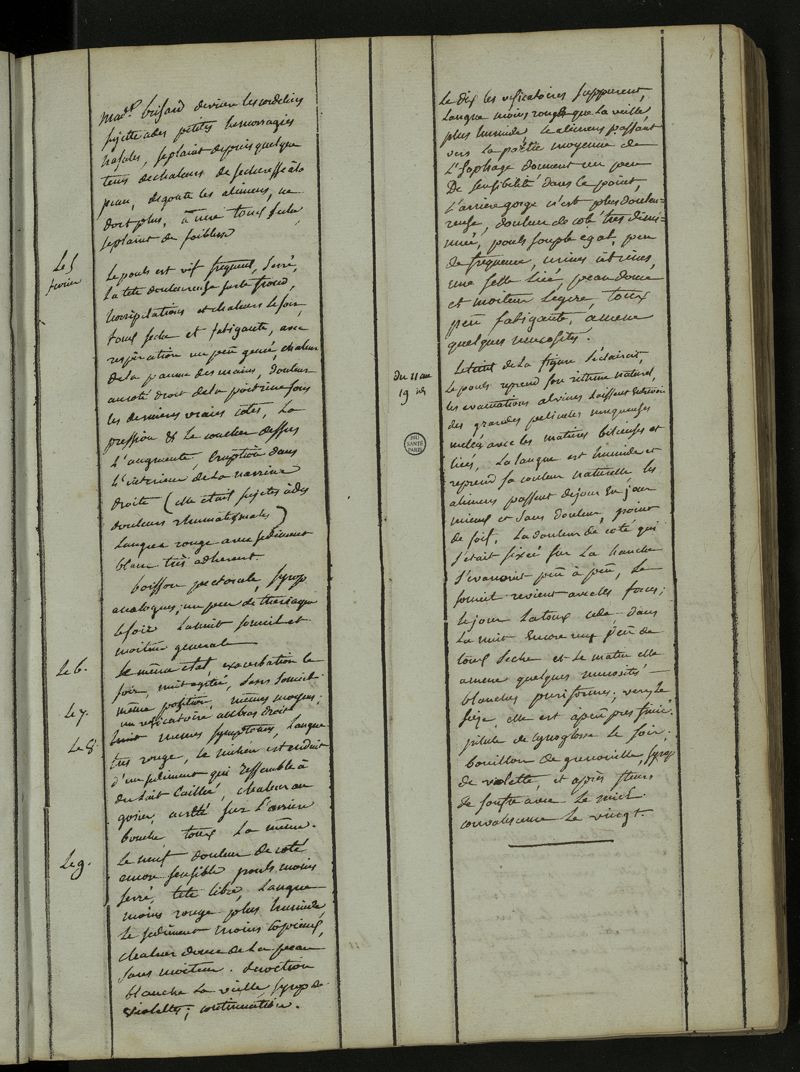 mad.e brisard derriere les cordeliers
sujette a des petites hemorragies
nasales, se plaint depuis quelque
tems de chaleurs de secheresse à la
peau, degoute les alimens, ne
dort plus, à une toux seche
se plaint de faiblesse
Le 5
fevrier
Le pouls est vif frequent, serré,
la tete douloureuse sur le front,
horripilations et chaleurs le soir
toux seche et fatigante, avec
respiration un peu genée, chaleur
de la paume des mains, douleur
au coté droit de la poitrine sous
les dernieres vraies cotes, la
pression & le coucher dessus
L'augmente, Eruption dans
L'interieur de la narrine
droite (elle etait sujette à des
douleurs rhumatismales)
Langue rouge avec sediment
blanc très adherent.
boisson pectorale, syrop
analogues, un peu de theriaque
le soir la nuit someil et
moiteur generale
Le 6.
Le même etat, exacerbation le
soir, nuit agitée, sans someil
Le 7.
même position, mêmes moyens;
un vesicatoire au bras droit
Le 8
huit memes symptomes, langue
tres rouge, le milieu est enduit
d'un sediment qui ressemble à
du lait caillé, chaleur au
gosier, acreté sur l'arriere
bouche toux la même.
Le 9.
Le neuf douleur de coté
encor sensible pouls moins
serré, tete libre, Langue
moins rouge plus humide,
Le sediment moins copieux,
chaleur douce de la peau
sans moiteur. decoction
blanche la vieille, syrop de
violettes; continuation.
Le dix les vesicatoires suppurent,
Langue moins rouge que la veille
plus humide Les alimens passant
vers la partie moyenne de
L'esophage donnent un peu
De sensibilité dans ce point,
L'arriere gorge n'est plus doulou-
reuse, douleur de coté très dimi-
nuée, pouls souple egal, peu
de frequence, urines citrines,
une selle liée, peau douce
et moiteur legere, toux
peu fatigante, amene
quelques mucosités.
du 11 au
19 us
Le teint de la figure s'éclaircit,
Le pouls reprend son rithme naturel,
les evacuations alvines laissent entrevoir
des grandes pelicules muqueuses
melées avec les matieres bilieuses et
liées, La langue est humide et
reprend sa couleur naturelle les
alimens passent de jour en jour
mieux et sans douleur, point
de soif, La douleur de coté qui
s'etait fixée sur la hanche
S'évanouit peu à peu, Le
someil revient avec les forces;
le jour La toux cede dans
La nuit Encore un peu de
toux seche et le matin elle
amene quelques mucosités
blanches puriformes; vers le
seize elle est à peu pres finie.
pilule de cynoglosse le soir;
bouillon de grenouille, syrop
de violette, et après fleurs
de soufre avec le miel.
convalescence le vingt.
BIU
SANTÉ
PARIS